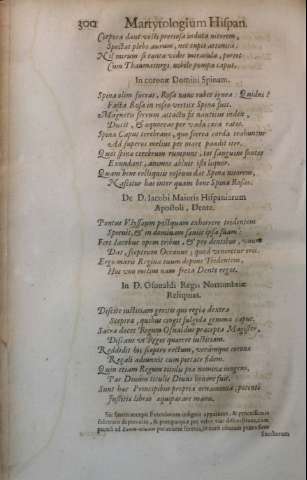 300 Martyrologium Hispan.
Corpora dant vesti pretiosa induta nitorem,
Spectat plebs aurum, nec capit attonita:
Nil mirum si tanta videt miracula, partem
Cum Thaumaturgi, nobile pompa caput.
In coronæ Domini Spinam.
Spina olim fueras, Rosa nunc rubet ignea: Quidni?
Facta Rosa in roseo vertice Spina fuit.
Magnetis ferrum attactu fit nautica
Ducit, & æquoreas per vada cæca rates.
Spina Caput terebrans, quo ferrea corda trahuntur
Ad superos melius per mare pandit iter.
Quot spina cerebrum rumpunt, tot sanguine fontes
Exundant, animos abluit iste liquor.
Quam bene relliquiis roseum dat Spina nitorem,
Nascitur hac inter quam bene Spina Rosas.
De D. Iacobi Maioris Hispaniarum
Apostoli, Dente.
Pontus Vlyssæum postquam exhorrere tridentem
Sprevit, & in dominum sæviit ipsa suum:
Fert Iacobus opem tribus, & pro dentibus, unum
Dat, sceptrum Oceanus, quod veneretur
Ergo maris Regina tuum depone Tridentem,
Hoc uno melius nam freta Dente reges.
In D. Osualdi Regis Nortumbriæ
Reliquias.
Discite iustitiam gentes qui regia dextra
Sceptra, quibus cingit fulgida gemma caput.
Sacra docet Regum Osualdus præcepta Magister,
Discant ut Reges quærere iustitiam.
Reddidit his sceptro rectum, verámque corona
Regali adiunxit cum pietate fidem.
Quin etiam Regum titulis pro nomine iungens,
Par Domini titulis Divus honore fuit.
Sunt hæc Principibus propria ornamenta, potenti
Iustitia libras æquiparare manu.
Sacellorum